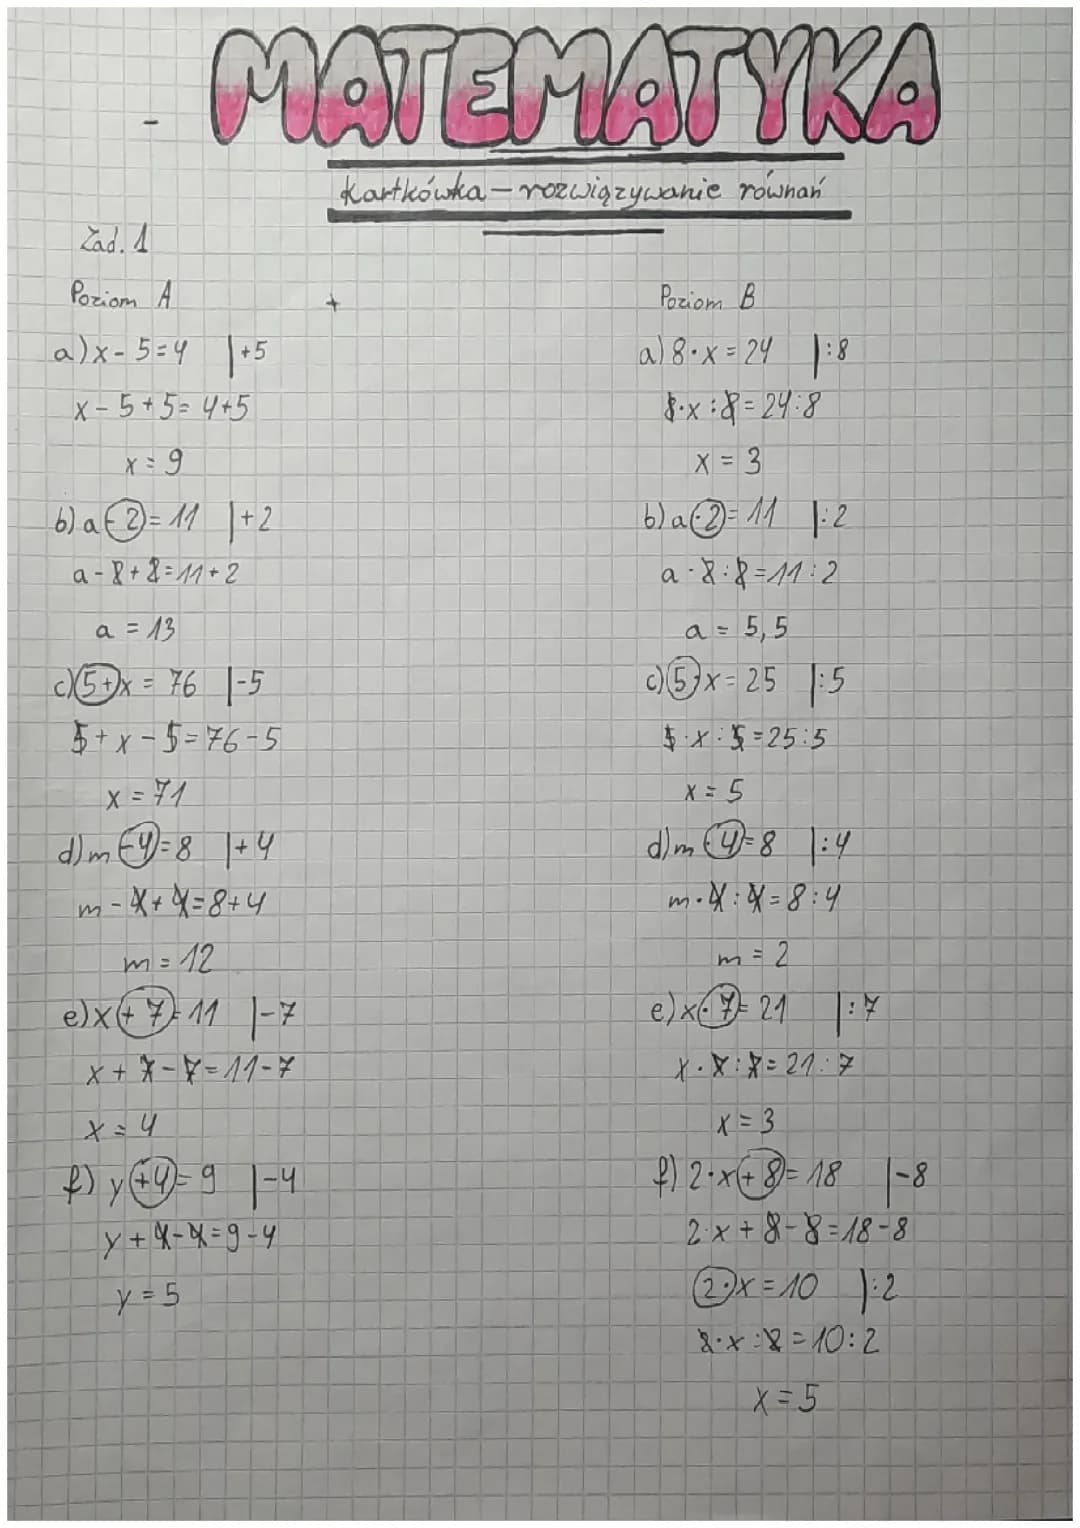 MATEMATYKA
Kartkówka – rozwiązywanie równań
Zad. 1
Poziom A
a) x - 5 = 4 | +5
x - 5 + 5 = 4 + 5
x = 9
b) a - 2 = 11 | + 2
a - 2 + 2 = 11 + 2
a = 13
c) 5 + x = 76 | - 5
5 + x - 5 = 76 - 5
x = 71
d) m - 4 = 8 | + 4
m - 4 + 4 = 8 + 4
m = 12
e) x + 7 = 11 | - 7
x + 7 - 7 = 11 - 7
x = 4
f) y + 4 = 9 | - 4
y + 4 - 4 = 9 - 4
y = 5
Poziom B
a) 8 · x = 24 | : 8
8 · x : 8 = 24 : 8
x = 3
b) a · 2 = 11 | : 2
a · 2 : 2 = 11 : 2
a = 5,5
c) 5 · x = 25 | : 5
5 · x : 5 = 25 : 5
x = 5
d) m · 4 = 8 | : 4
m · 4 : 4 = 8 : 4
m = 2
e) x · 7 = 21 | : 7
x · 7 : 7 = 21 : 7
x = 3
f) 2 · x + 8 = 18 | - 8
2 · x + 8 - 8 = 18 - 8
2 · x = 10 | : 2
2 · x : 2 = 10 : 2
x = 5